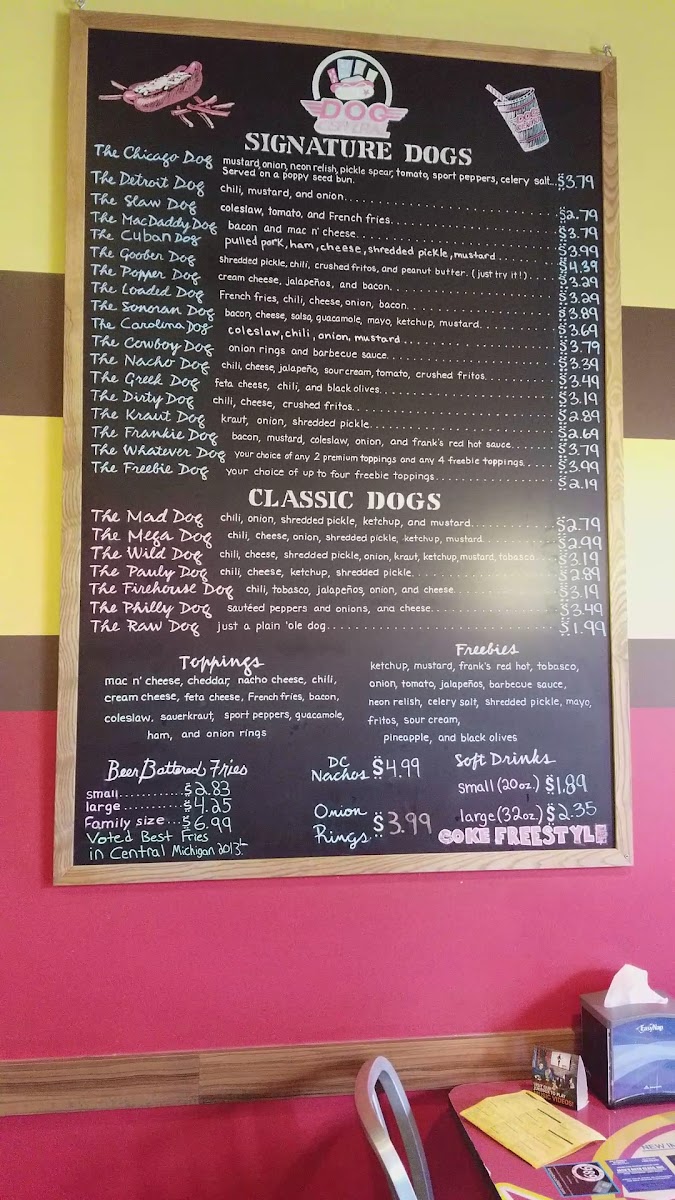 DOG
CENTRAL
SIGNATURE DOGS
The Chicago Dog mustard, onion, neon relish, pickle spear, tomato, sport peppers, celery salt... $3.79
Served on a poppy seed bun.
The Detroit Dog chili, mustard, and onion... $2.79
The Slaw Dog coleslaw, tomato, and French fries... $3.79
The MacDaddy Dog bacon and mac n' cheese... $3.99
The Cuban Dog pulled pork, ham, cheese, shredded pickle, mustard... $4.39
The Goober Dog shredded pickle, chili, crushed fritos, and peanut butter. (just try it!)... $3.29
The Popper Dog cream cheese, jalapeños, and bacon... $3.29
The Loaded Dog French fries, chili, cheese, onion, bacon... $3.89
The Sonoran Dog bacon, cheese, salsa, guacamole, mayo, ketchup, mustard... $3.69
The Carolina Dog coleslaw, chili, onion, mustard... $3.79
The Cowboy Dog onion rings and barbecue sauce... $3.39
The Nacho Dog chili, cheese, jalapeño, sour cream, tomato, crushed fritos... $3.49
The Greek Dog feta cheese, chili, and black olives... $3.19
The Dirty Dog chili, cheese, crushed fritos... $2.89
The Kraut Dog kraut, onion, shredded pickle... $2.69
The Frankie Dog bacon, mustard, coleslaw, onion, and frank's red hot sauce... $3.79
The Whatever Dog your choice of any 2 premium toppings and any 4 freebie toppings... $3.99
The Freebie Dog your choice of up to four freebie toppings... $2.19
CLASSIC DOGS
The Mad Dog chili, onion, shredded pickle, ketchup, and mustard... $2.79
The Mega Dog chili, cheese, onion, shredded pickle, ketchup, mustard... $2.99
The Wild Dog chili, cheese, shredded pickle, onion, kraut, ketchup, mustard, tobasco... $3.19
The Pauly Dog chili, cheese, ketchup, shredded pickle... $2.89
The Firehouse Dog chili, tobasco, jalapeños, onion, and cheese... $3.19
The Philly Dog sautéed peppers and onions, and cheese... $3.49
The Raw Dog just a plain 'ole dog... $1.99
Toppings
mac n' cheese, cheddar, nacho cheese, chili,
cream cheese, feta cheese, French fries, bacon,
coleslaw, sauerkraut, sport peppers, guacamole,
ham, and onion rings
Freebies
ketchup, mustard, frank's red hot, tobasco,
onion, tomato, jalapeños, barbecue sauce,
neon relish, celery salt, shredded pickle, mayo,
fritos, sour cream,
pineapple, and black olives
Beer Battered Fries
small... $2.83
large... $4.25
Family size... $6.99
Voted Best Fries
in Central Michigan 2013!
DC
Nachos $4.99
Onion
Rings $3.99
Soft Drinks
small (20oz.) $1.89
large (32oz.) $2.35
COKE FREESTYLE
EasyNap
NEW IN